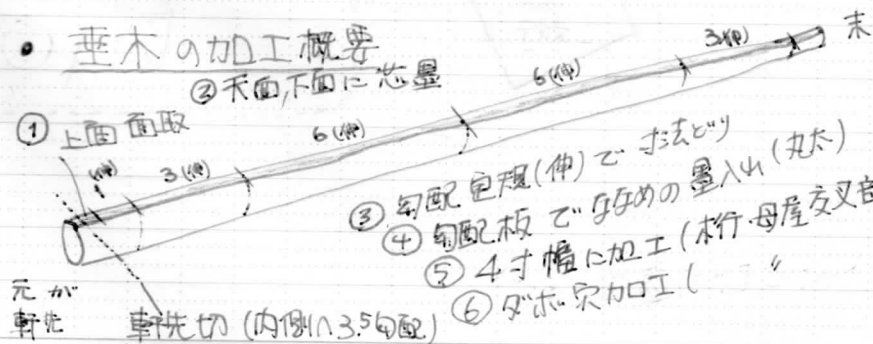 • 垂木の加工概要
② 天面,下面に芯墨
① 上面面取
3(伸)
6(伸)
6(伸)
3(伸)
末
③ 勾配定規(伸)で寸法どり
④ 勾配板でななめの墨入れ(丸太)
⑤ 4寸幅に加工(桁行・母屋交叉部
⑥ ダボ穴加工( 〃
元が
軒先
軒先切(内側へ3.5勾配)